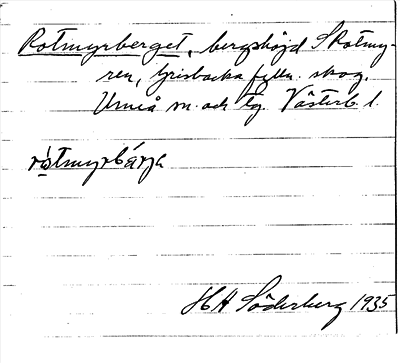 Rotmyrberget, bergshöjd S Rotmy-
ren, Grisbacka fjälln. skog.
Umeå sn. och tg. Västerb. l.
ròtmyrbárja
H A Söderberg 1935